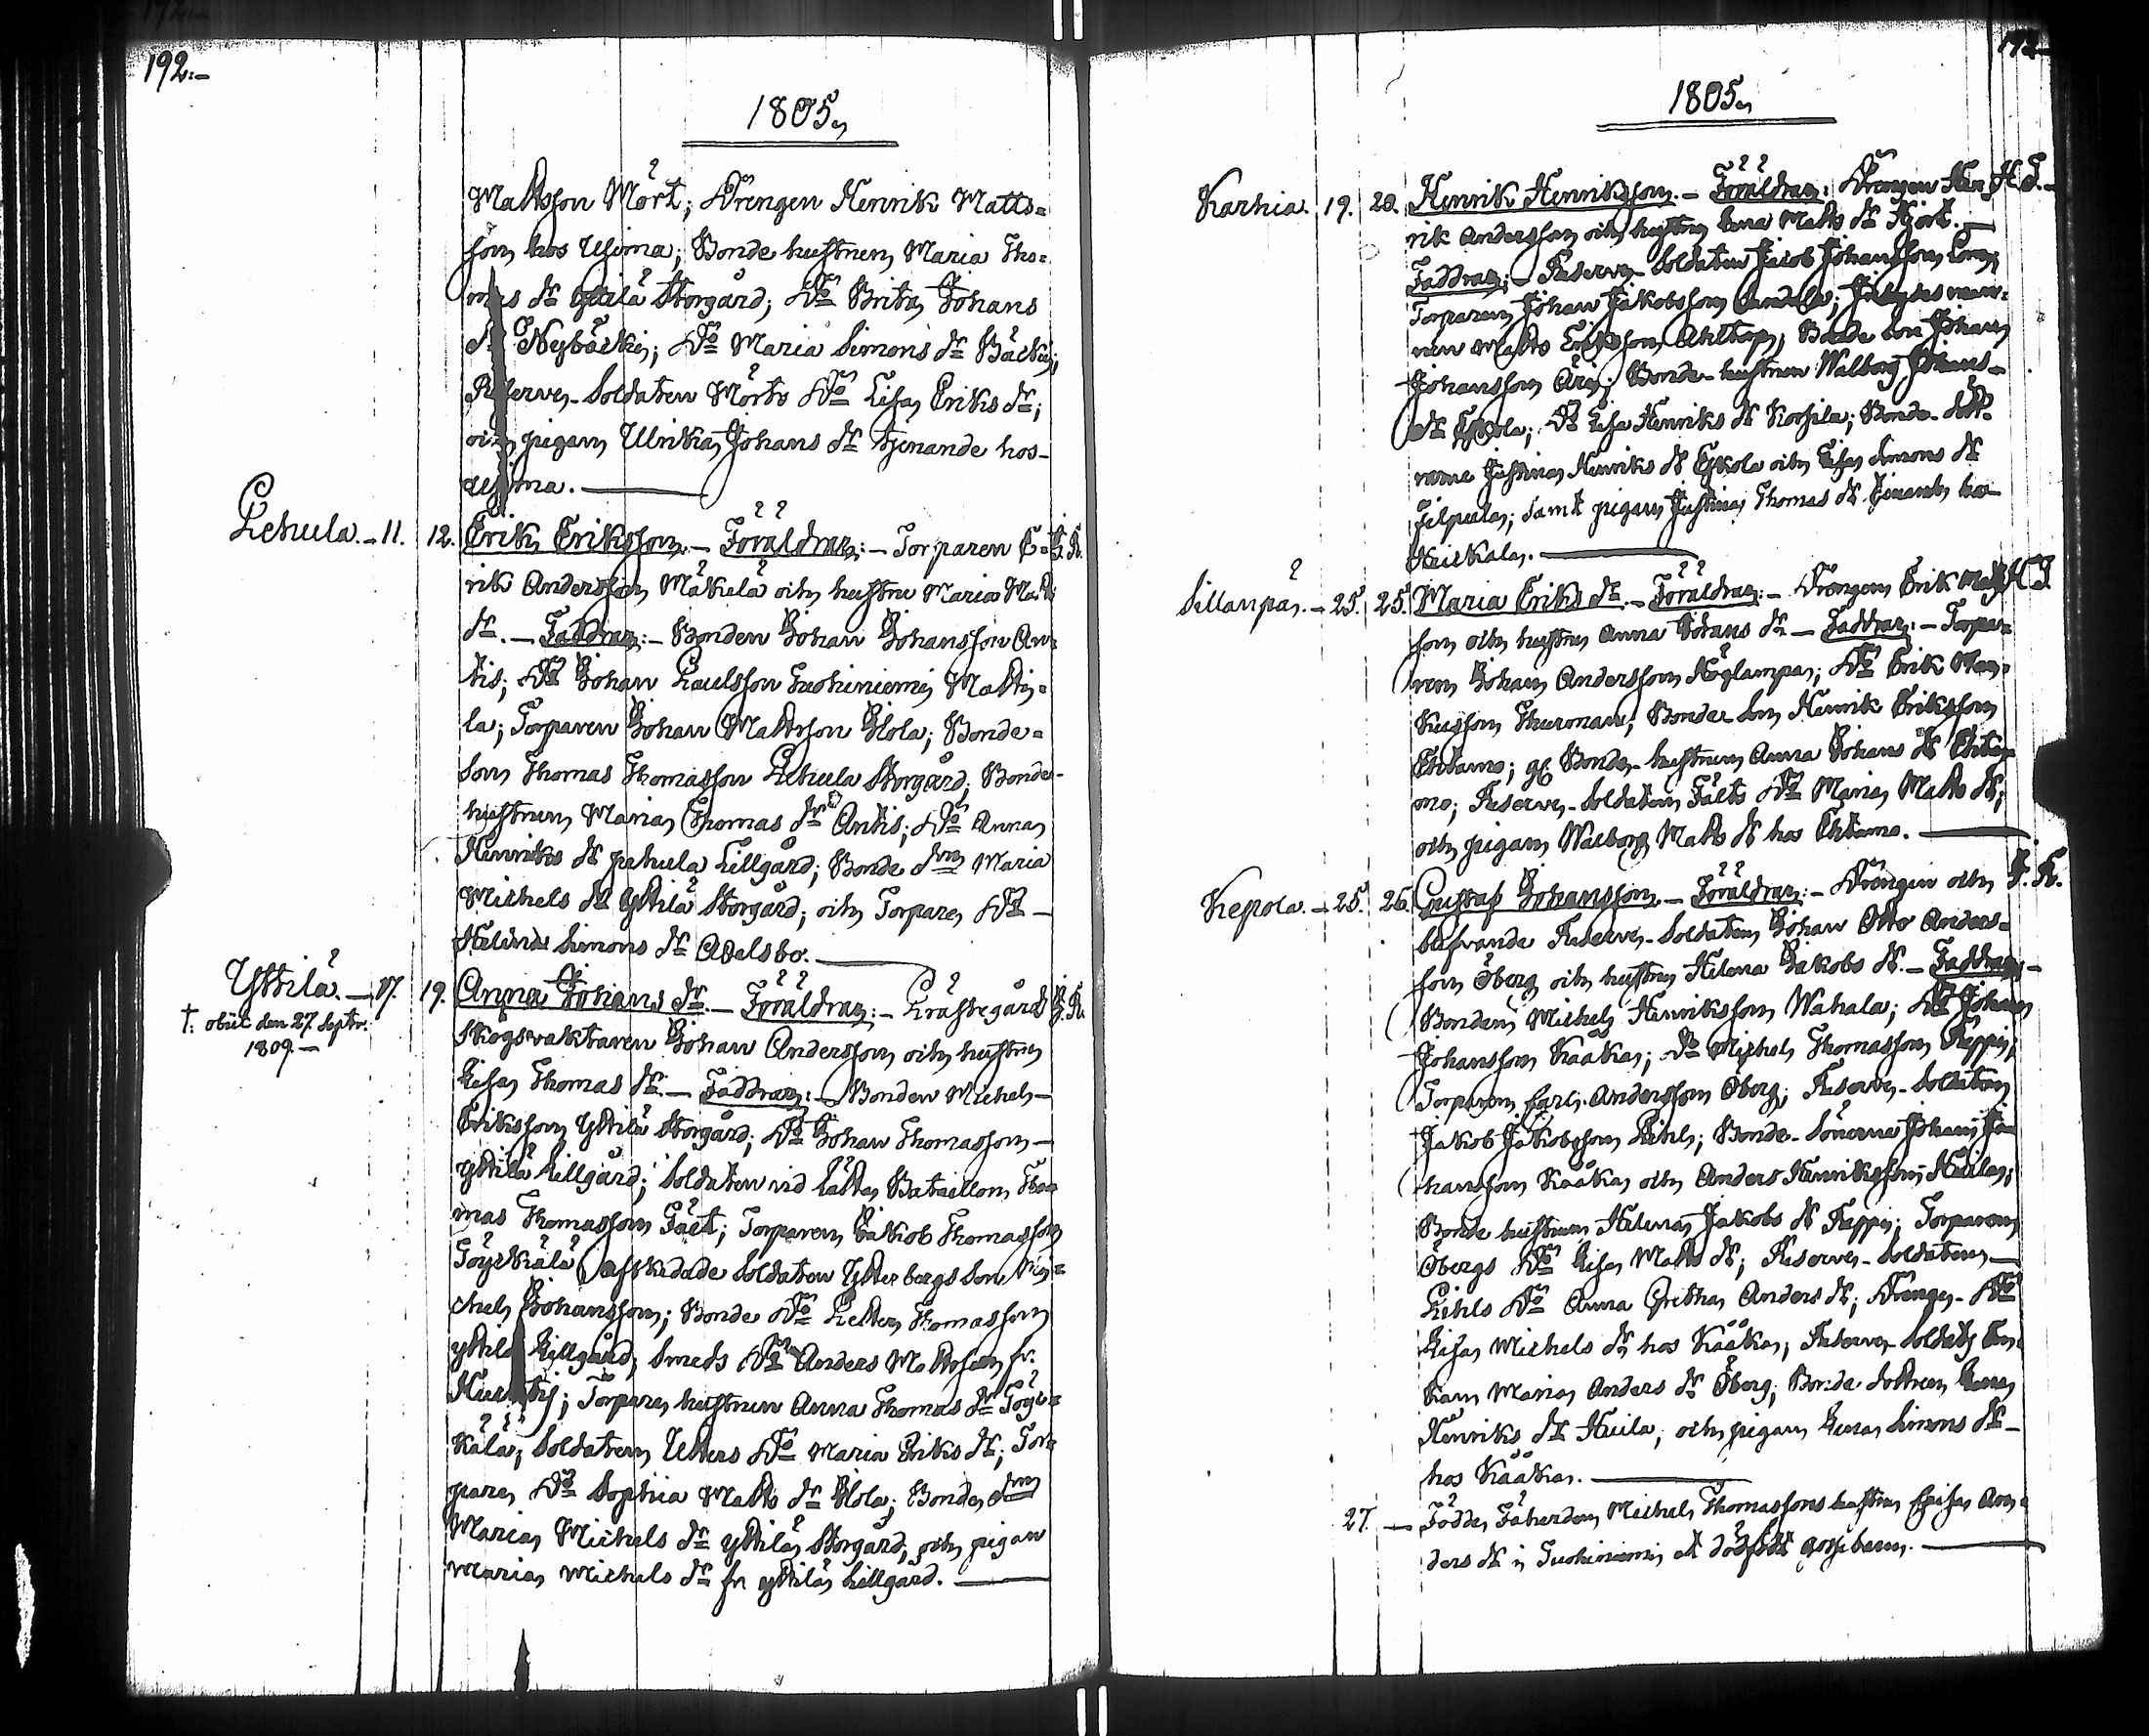 192.-
1805.
Mattsson Mört; Drengen Henrik Matts=
son hos Uhima; Bonde hustrun Maria Tho=
mas dr Yttilä Storgård; Do Brita Johans
dr Nybäcki; Do Maria Simons dr Bäcki;
Reserve-Soldaten Mörts Do Lisa Eriks dr;
och pigan Ulrika Johans dr tjenande hos
Lehula.-11. 12. Erik Eriksson.- Föräldrar:- Torparen E= J.K.
rik Andersson Mäkelä och hustru Maria Matts
dr.- Faddrar:- Bonden Johan Johansson An=
tis; Do Johan Paulsson Mattiz=
la; Torparen Johan Mattsson Hola; Bonde=
son Thomas Thomasson Lehula Storgård; Bonde-
hustrun Maria Thomas dr Antis; Do Anna
Henriks dr Lillgård; Bonde drn Maria
Michels dr Yttilä Storgård; och Torpare Do
Simons dr Adelsbo.
Yttilä.-17. 19. Anna Johans dr.- Föräldrar:- Prästegårds J.K.
†. obiit den 27. Septr.
1809.-
Skogsvaktaren Johan Andersson och hustrun
Lisa Thomas dr.- Faddrar:- Bonden Michel
Eriksson Yttilä Storgård; Do Johan Thomasson
Yttilä Lillgård; Soldaten vid Bataillon Tho=
mas Thomasson Fält; Torparen Jakob Thomasson
afskedade Soldaten Ytterbergs Son Mi=
chel Johansson; Bonde Do Petter Thomasson
Yttilä Lillgård; Smeds Do Anders Mattsson fr.
Torpare hustrun Anna Thomas dr
Soldaten Utters Do Maria Eriks dr; Tor=
pare Do Sophia Matts dr Hola; Bonde drn
Maria Michels dr Yttilä Storgård, och pigan
Maria Michels dr fr Yttilä Lillgård.
1805.
Karhia. 19. 20. Henrik Henriksson.- Föräldrar: Drengen Hen= H.I.
rik Andersson och hustrun Matts dr Hjort.-
Faddrar:- Reserve-Soldaten Jacob Johansson
Torparen Johan Jakobsson
nen Matts Eriksson Bonde Son Johan
Johansson Äri; Bonde-hustrun Walborg Johans
dr Eskola; Do Lisa Henriks dr Bonde-döt
rarne Justina Henriks dr Eskola och Lisa Simons dr
Filpula; samt pigan Justina Thomas dr hos
Heikala.
Sillanpä.-25. 25. Maria Eriks dr.- Föräldrar:- Drengen Erik Matts H.I.
son och hustrun Anna Johans dr.- Faddrar:- Torpa=
ren Johan Andersson Do Erik Mar=
kusson Bonde Son Henrik Eriksson
Ehtamo; Bonde-hustrun Anna Johans dr Ehta=
mo; Reserve-Soldaten Fälts Do Maria Matts dr;
och pigan Walborg Matts dr hos Ehtamo.
Kepola.-25. 26. Gustaf Johansson.- Föräldrar:- Drengen och J.K.
blifvande Reserve-Soldaten Johan Otto Anders=
son Öberg och hustrun Helena Jakobs dr.- Faddrar:-
Bonden Michel Henriksson Wahala; Do Johan
Johansson Kääkä; Do Michel Thomasson Reppi;
Torparen Carl Andersson Öberg; Reserve-Soldaten
Jakob Jakobsson Lihls; Bonde-Sönerna Johan Jo
hansson Kääkä och Anders Henriksson Huila;
Bonde hustrun Helena Jakobs dr Reppi; Torparen
Öbergs Do Lisa Matts dr; Reserve-Soldaten
Lihls Do Anna Gretha Anders dr; Drenge-Do
Lisa Michels dr hos Kääkä; Reserve-Soldats En=
kan Maria Anders dr Öberg; Bonde dottren
Henriks dr Huila; och pigan Simons dr
hos Kääkä.
27. - Födde Michel Thomassons hustru An=
ders dr i ett dödfödt gossebarn.